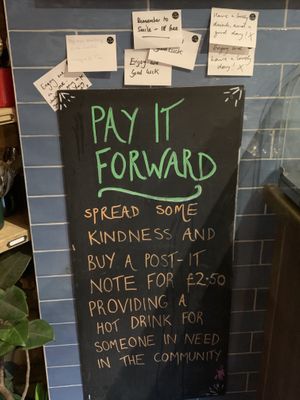 Remember to
Smile - it's free
Enjoy and
Good luck
Have a lovely
good day! X
Enjoy and
have a lovely
day! X
PAY IT
FORWARD
SPREAD SOME
KINDNESS AND
BUY A POST-IT
NOTE FOR £2.50
PROVIDING A
HOT DRINK FOR
SOMEONE IN NEED
IN THE COMMUNITY